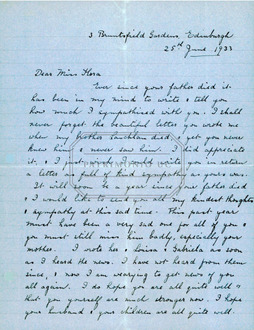 3 Bruntsfield Gardens, Edinburgh
25th June 1933
Dear Miss Flora
Ever since your father died it
has been in my mind to write & tell you
how much I sympathised with you. I shall
never forget the beautiful letter you wrote me
when my brother died & yet you never
knew him & never saw him. I did appreciate
it. & I just wish I could write you in return
a letter as full of kind sympathy as yours was.
It will soon be a year since your father died
& I would like to send you all my kindest thoughts
& sympathy at this sad time. This past year
must have been a very sad one for all of you &
you must still miss him badly, especially your
mother. I wrote her & Gabriela as soon
as I heard the news. I have not heard from them
since, & now I am wearying to get news of you
all again. I do hope you are all quite well &
that you yourself are much stronger now. I hope
your husband & your children are all quite well.